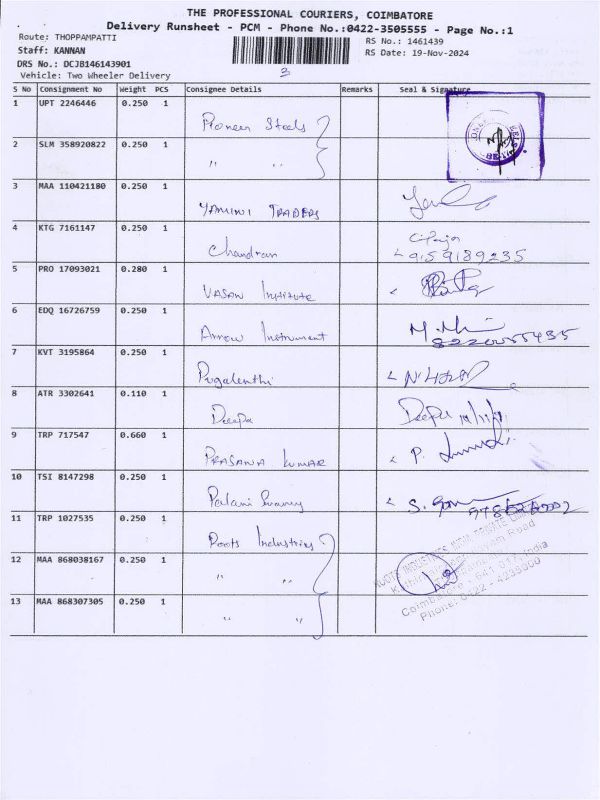 THE PROFESSIONAL COURIERS, COIMBATORE
Delivery Runsheet - PCM - Phone No.:0422-3505555 - Page No.:1
Route: THOPPAMPATTI
RS No.: 1461439
Staff: KANNAN
RS Date: 19-Nov-2024
DRS No.: DCJB146143901
Vehicle: Two Wheeler Delivery
3
S No Consignment No Weight PCS Consignee Details Remarks Seal & Signature
1 UPT 2246446 0.250 1 Pioneer Steels
2 SLM 358920822 0.250 1 " "
3 MAA 110421180 0.250 1 YAMINI TRADERS
4 KTG 7161147 0.250 1 Chandran
9159189235
5 PRO 17093021 0.280 1 VASAN Institute
6 EDQ 16726759 0.250 1 Arrow Instrument
8220055435
7 KVT 3195864 0.250 1 Pugalenthi
8 ATR 3302641 0.110 1 Deepa Deepa 19/11/
9 TRP 717547 0.660 1 PRASANA KUMAR P.
10 TSI 8147298 0.250 1 Palani Swamy S.
11 TRP 1027535 0.250 1 Roots Industries
12 MAA 868038167 0.250 1 " "
13 MAA 868307305 0.250 1 " "
ROOTS INDUSTRIES INDIA PRIVATE LIMITED
Road
641 041, India
Phone: 0422 - 4239000